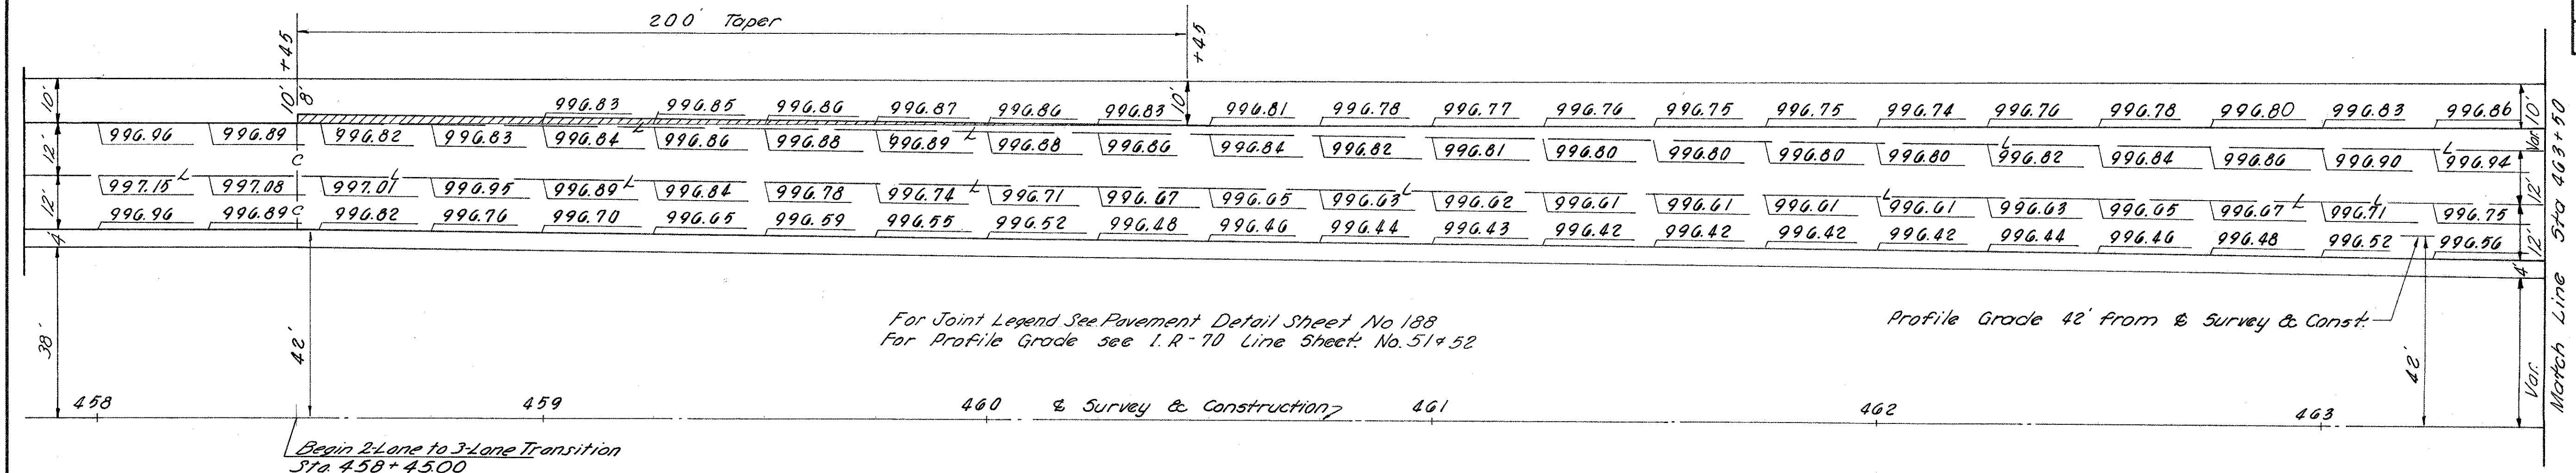 200' Taper
+45
+45
10'
10'
8'
996.83 996.85 996.86 996.87 996.86 996.83 10' 996.81 996.78 996.77 996.76 996.75 996.75 996.74 996.76 996.78 996.80 996.83 996.86 10'
12' 996.96 996.89 996.82 996.83 996.84 L 996.86 996.88 996.89 L 996.88 996.86 996.84 996.82 996.81 996.80 996.80 996.80 996.80 L 996.82 996.84 996.86 996.90 L 996.94 Var.
C
12' 997.15 L 997.08 997.01 L 996.95 996.89 L 996.84 996.78 996.74 L 996.71 996.67 996.65 996.63 L 996.62 996.61 996.61 996.61 L 996.61 996.63 996.65 996.67 L 996.71 L 996.75 12'
996.96 996.89 C 996.82 996.76 996.70 996.65 996.59 996.55 996.52 996.48 996.46 996.44 996.43 996.42 996.42 996.42 996.42 996.44 996.46 996.48 996.52 996.56 12'
4'
4'
38'
42'
For Joint Legend See Pavement Detail Sheet No 188
For Profile Grade see I.R-70 Line Sheet No. 51 & 52
Profile Grade 42' from ℄ Survey & Const.
42'
Var.
Match Line Sta 463+50
458 459 460 ℄ Survey & Construction 461 462 463
Begin 2-Lane to 3-Lane Transition
Sta. 458+45.00